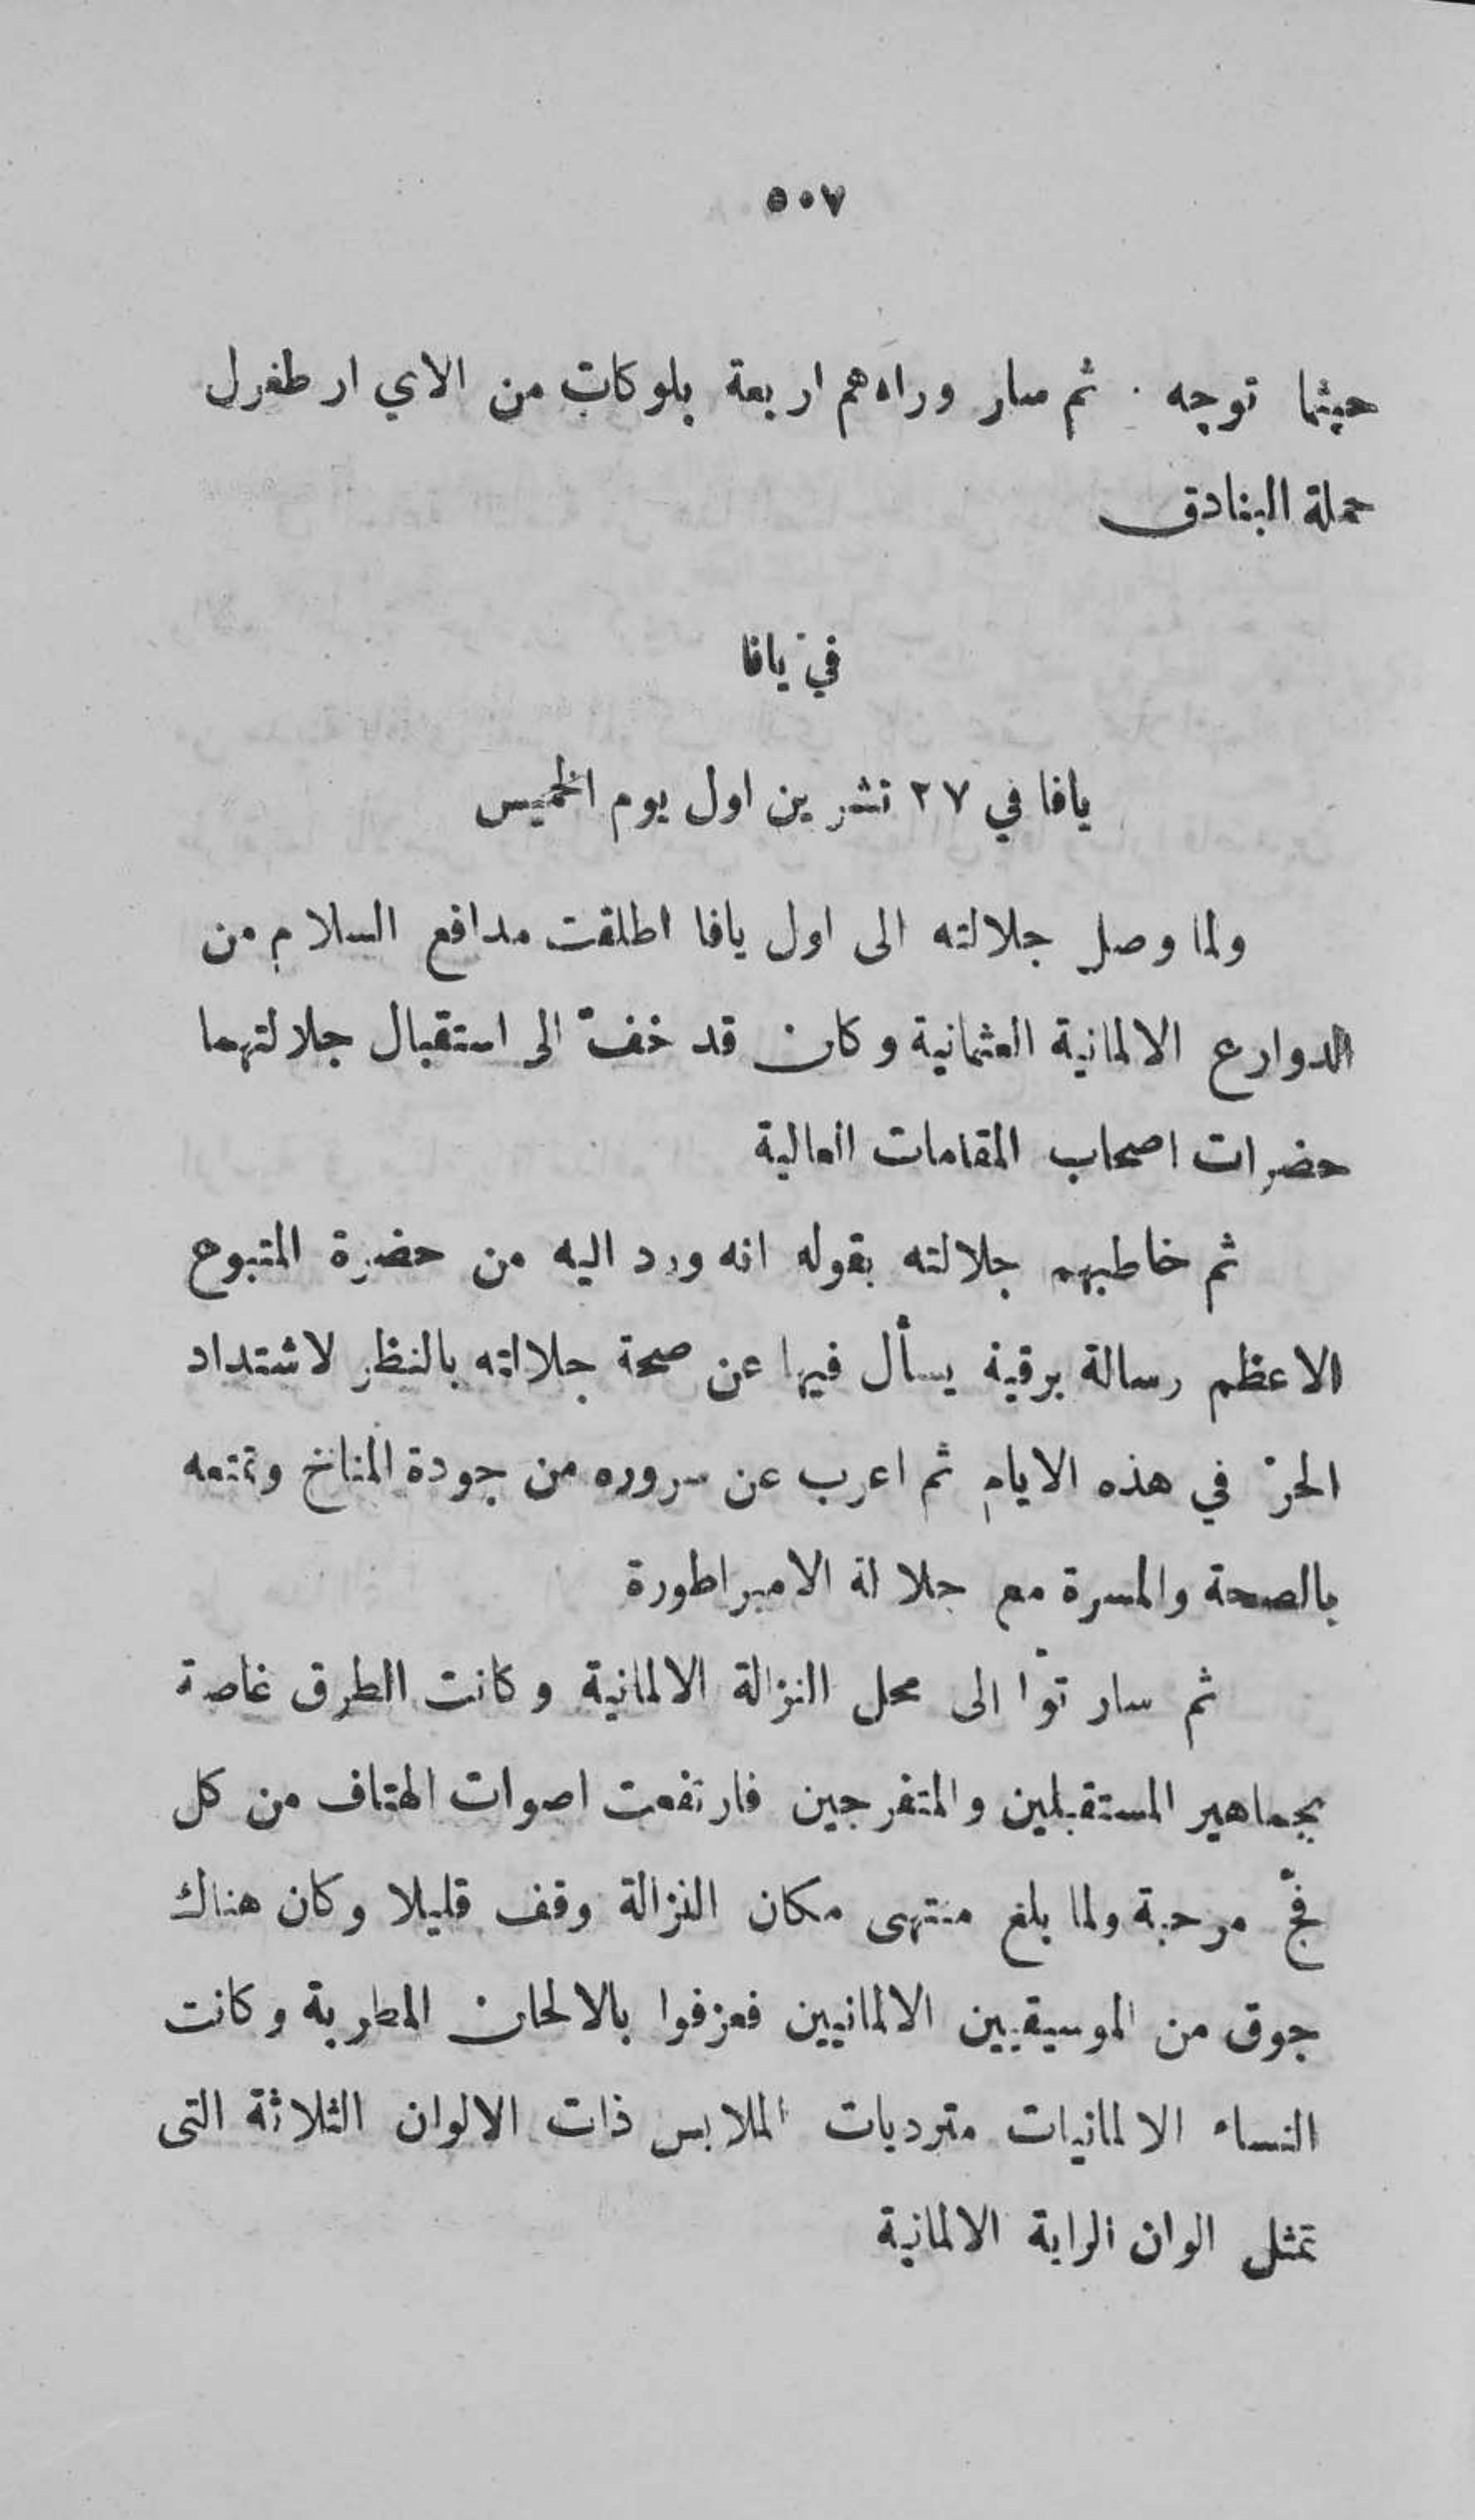 ٥٠٧
حيثما توجه . ثم سار وراءهم اربعة بلوكات من الاي ارطغرل
حملة البنادق
في يافا
يافا في ٢٧ تشرين اول يوم الخميس
ولما وصل جلالته الى اول يافا اطلقت مدافع السلام من
الدوارع الالمانية العثمانية وكان قد خفّ الى استقبال جلالتهما
حضرات اصحاب المقامات العالية
ثم خاطبهم جلالته بقوله انه ورد اليه من حضرة المتبوع
الاعظم رسالة برقية يسأل فيها عن صحة جلالته بالنظر لاشتداد
الحرّ في هذه الايام ثم اعرب عن سروره من جودة المناخ وتمتعه
بالصحة والمسرة مع جلالة الامبراطورة
ثم سار توّا الى محل النزالة الالمانية وكانت الطرق غاصة
بجماهير المستقبلين والمتفرجين فارتفعت اصوات الهتاف من كل
فجّ مرحبة ولما بلغ منتهى مكان النزالة وقف قليلا وكان هناك
جوق من الموسيقيين الالمانيين فعزفوا بالالحان المطربة وكانت
النساء الالمانيات مترديات الملابس ذات الالوان الثلاثة التى
تمثل الوان الراية الالمانية